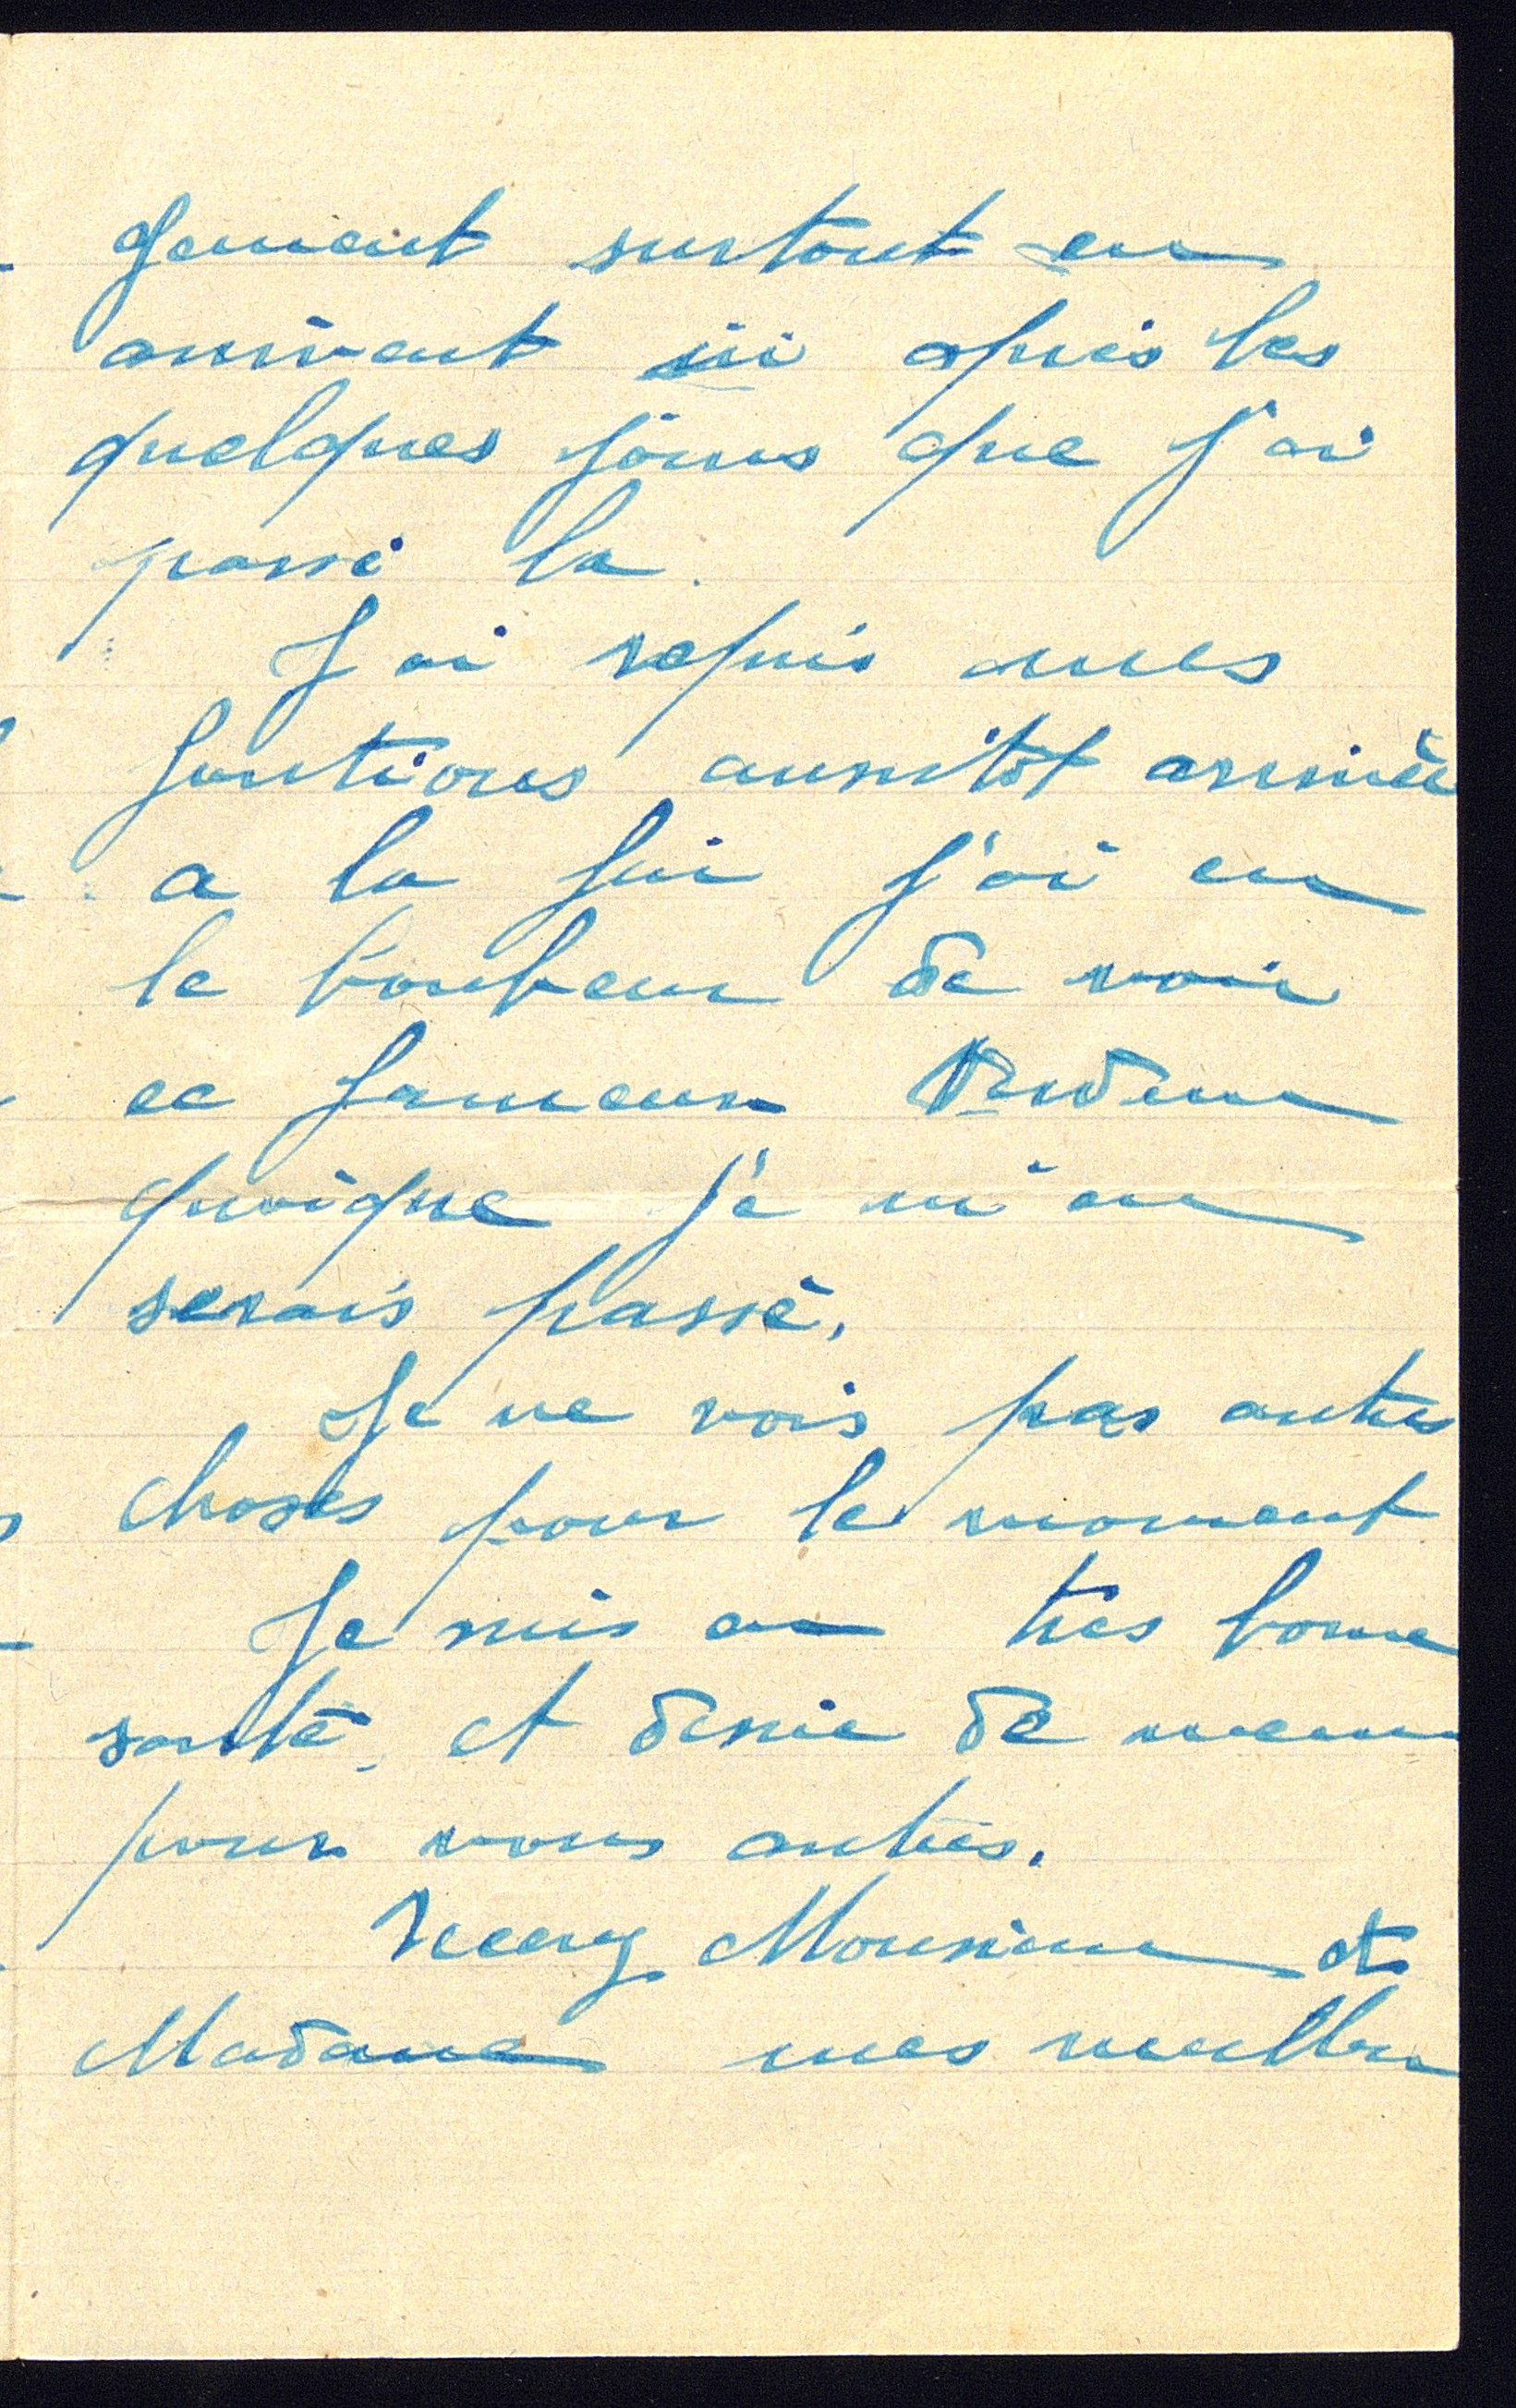 gement surtout en
arrivant ici après les
quelques jours que j'ai
passé la.
J'ai repris mes
fontions aussitôt arrivée
a la fin j'ai eu
le bonheur de voir
ce fameux Verdun
quoique je m'en
serais passé.
Je ne vois pas autres
choses pour le moment
Je suis en très bonne
santé, et desire de meme
pour vous autres.
Recevez Monsieur et
Madame mes meilleurs